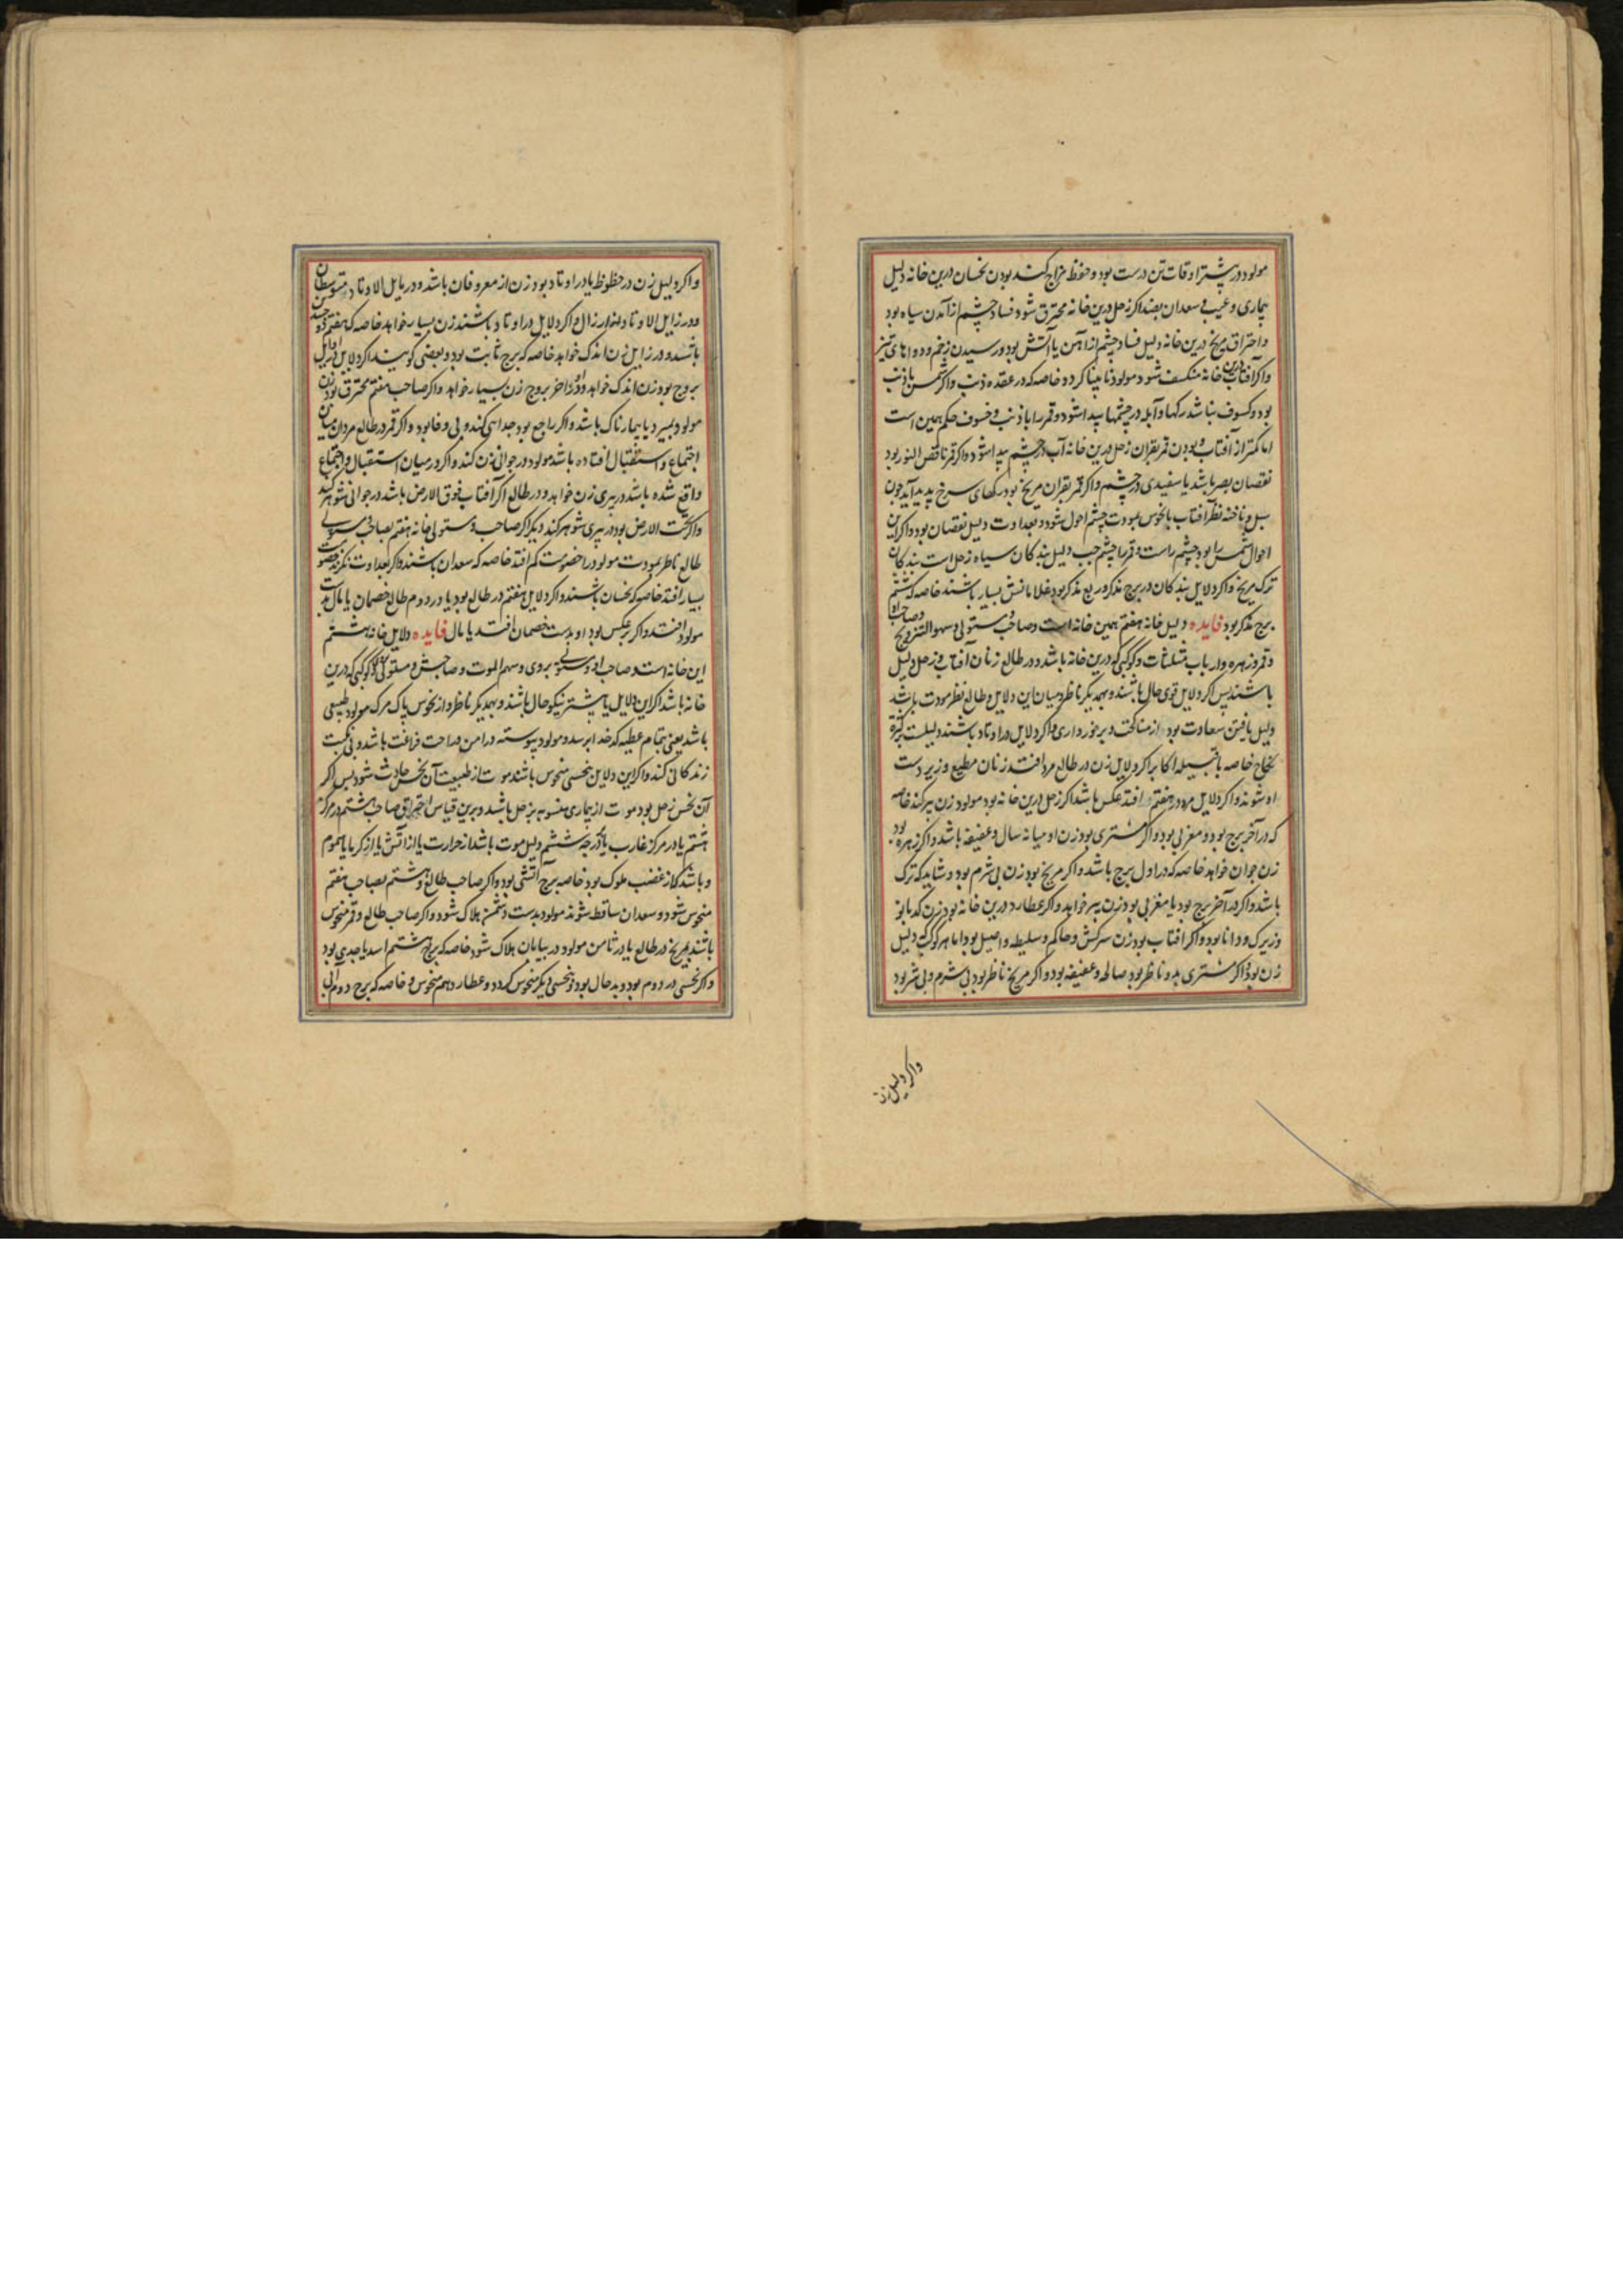 مولود در بیشتر اوقات تن درست بود و حفظ مزاج کند بودن نحسان درین خانه دلیل
بیماری و عیب و سعدان بضد اکر زحل درین خانه محترق شود فساد چشم از آمدن سیاه بود
و احتراق مریخ درین خانه دلیل فساد چشم از آهن یا آتش بود و رسیدن زخم و دواهای تیز
و اکر آفتاب درین خانه منکسف شود مولود نابینا کردد خاصه که در عقده ذنب و اکر شمس با ذنب
بود و کسوف نباشد رکها و آبله در چشمها پیدا شود و قمر را با ذنب و خسوف حکم همین است
اما کمتر از آفتاب و بودن قمر بقران زحل درین خانه آب در چشم پیدا شود و اکر قمر ناقص النور بود
نقصان بصر باشد یا سفیدی در چشم و اکر قمر بقران مریخ بود رکهای سرخ پدید آید چون
سبل و ناخنه نظر آفتاب با نحوس بمودت چشم احول شود و بعداوت دلیل نقصان بود و اکر این
احوال شمس را بود چشم راست و قمر را چشم چپ دلیل بندکان سیاه زحل است بندکان
ترک مریخ و اکر دلایل بندکان در برج مذکر و ربع مذکر بود غلامانش بسیار باشند خاصه که ششم
برج مذکر بود فایده دلیل خانه هفتم همین خانه است و صاحب و مستولی و سهم التزویج و صاحب او
و قمر و زهره و ارباب مثلثات و کوکبی که درین خانه باشد و در طالع زنان آفتاب و زحل دلیل
باشند پس اکر دلایل قوی حال باشند و بهمدیکر ناظر و میان این دلایل و طالع نظر مودت باشد
دلیل یافتن سعادت بود از مناکحت و برخورداری و اکر دلایل در اوتاد باشند دلیلست بر کثرة
نکاح خاصه با قبیله اکابر اکر دلایل زن در طالع مرد افتند زنان مطیع و زیر دست
او شوند و اکر دلایل مرد در هفتم افتد عکس باشد اکر زحل درین خانه بود مولود زن پیر کند خاصه
که در آخر برج بود و مغربی بود و اکر مشتری بود زن او میانه سال و عفیفه باشد و اکر زهره بود
زن جوان خواهد خاصه که در اول برج باشد و اکر مریخ بود زن بی شرم بود و شاید که ترک
باشد و اکر در آخر برج بود یا مغربی بود زن پیر خواهد و اکر عطارد درین خانه بود زن کدبانو
و زیرک و دانا بود و اکر افتاب بود زن سرکش و حاکم و سلیطه و اصیل بود اما هر کوکب که دلیل
زن بود اکر مشتری بدو ناظر بود صالحه و عفیفه بود و اکر مریخ ناظر بود بی شرم و بی شر بود
واکر دلیل زن
واکر دلیل زن در حظوظ یا در اوتاد بود زن از معروفان باشد و در مایل الاوتاد متوسطان
و در زایل الاوتاد از ارزال و اکر دلایل در اوتاد باشند زن بسیار خواهد خاصه که هفتم ذو جسدین
باشد و در زایل زن اندک خواهد خاصه که برج ثابت بود و بعضی کویند اکر دلایل در اوایل
بروج بود زن اندک خواهد و در اواخر بروج زن بسیار خواهد و اکر صاحب هفتم محترق بود زن
مولود بمیرد یا بیمارناک باشد و اکر راجع بود جدایی کند و بی وفا بود و اکر قمر در طالع مردان میان
اجتماع و استقبال افتاده باشد مولود در جوانی زن کند و اکر در میان استقبال و اجتماع
واقع شده باشد در پیری زن خواهد و در طالع اکر آفتاب فوق الارض باشد در جوانی شوهر کند
و اکر تحت الارض بود در پیری شوهر کند دیکر اکر صاحب و مستولی خانه هفتم بصاحب و مستولی
طالع ناظر بمودت مولود را خصومت کم افتد خاصه که سعدان باشند و اکر بعداوت نکرند خصومت
بسیار افتد خاصه که نحسان باشند و اکر دلایل هفتم در طالع بود یا در دوم طالع خصمان یا مال بدست
مولود افتند و اکر برعکس بود او بدست خصمان افتد یا مال فایده دلایل خانه هشتم
این خانه است و صاحب او و مستولی بر وی و سهم الموت و صاحبش و مستولی و کوکبی که درین
خانه باشد اکر این دلایل یا بیشتر نیکو حال باشند و بهمدیکر ناظر و از نحوس پاک مرک مولود طبیعی
باشد یعنی بتمام عطیه کدخدا برسد و مولود پیوسته در امن و راحت فراغت باشد و بی نکبت
زندکانی کند و اکر این دلایل بنحسی منحوس باشند موت از طبیعت آن نحس حادث شود پس اکر
آن نحس زحل بود موت از بیماری منسوب بزحل باشد و برین قیاس احتراق صاحب هشتم در مرکز
هشتم یا در مرکز غارب یا در درجه ششم دلیل موت باشد از حرارت یا از آتش یا از کرما یا سموم
و باشد که از غضب ملوک بود خاصه برج آتشی بود و اکر صاحب طالع و هشتم بصاحب هفتم
منحوس شود و سعدان ساقط شوند مولود بدست دشمن هلاک شود و اکر صاحب طالع و قمر منحوس
باشند بمریخ در طالع یا در ثامن مولود در بیابان هلاک شود خاصه که برج هشتم اسد یا جدی بود
و اکر نحسی در دوم بود و بد حال بود و بنحسی دیکر منحوس کردد و عطارد هم منحوس و خاصه که برج دوم آبی